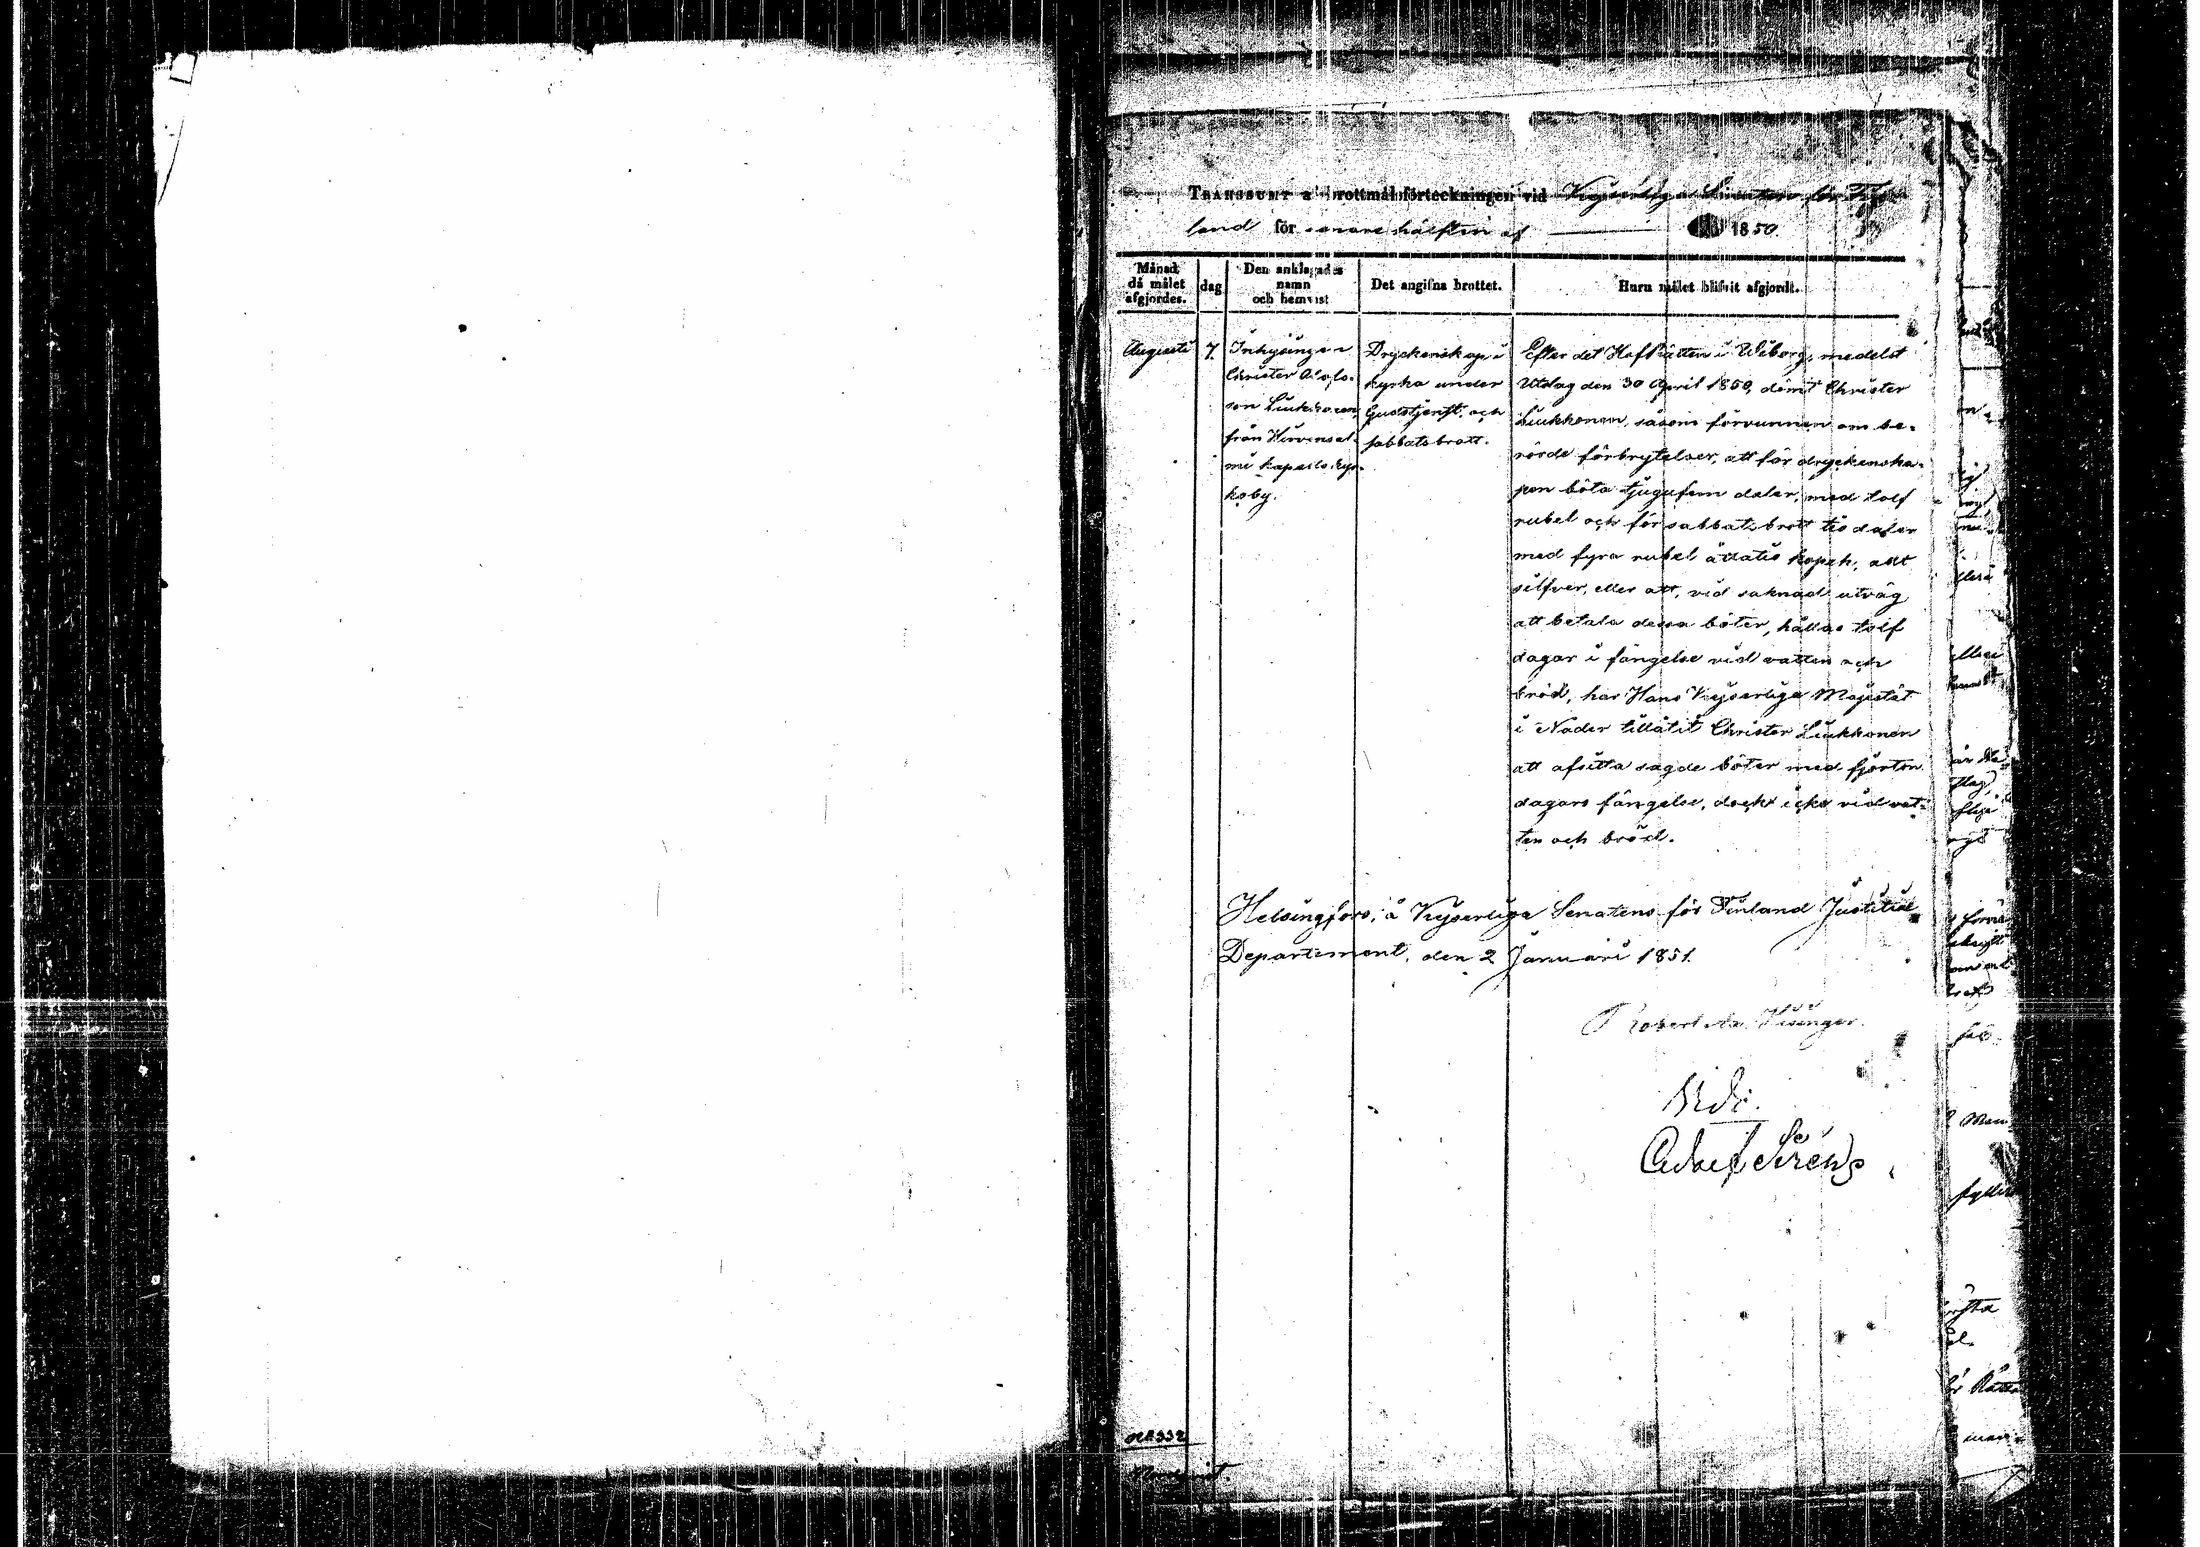 TRANSSUMT af brottmålsförteckningen vid Kejserliga Senaten för Fin-
land för senare hälften af 1850.
Månad, då målet afgjordes.
dag
Den anklagades namn och hemvist
Det angifna brottet.
Huru målet blifvit afgjordt.
Augusti
7.
Inhysingen
Christer Olofs-
son Liukkonen,
från Hirvensal-
mi kapells kyr-
koby.
Dryckenskap i
kyrka under
Gudstjenst, och
sabbatsbrott.
Efter det HofRätten i Wiborg, medelst
Utslag den 30 April 1850, dömt Christer
Liukkonen, såsom förvunnen om be-
rörde förbrytelser, att för dryckenska-
pen böta tjugufem daler, med tolf
rubel och för sabbatsbrott tio daler
med fyra rubel åttatio kopek, allt
silfver, eller att, vid saknad utväg
att betala dessa böter, hållas tolf
dagar i fängelse vid vatten och
bröd, har Hans Kejserliga Majestät
i Nåder tillåtit Christer Liukkonen
att afsitta sagde böter med fjorton
dagars fängelse, dock icke vid vat-
ten och bröd.
Helsingfors, å Kejserliga Senatens för Finland Justitiæ
Departement, den 2 Januari 1851.
Robert Hisinger.